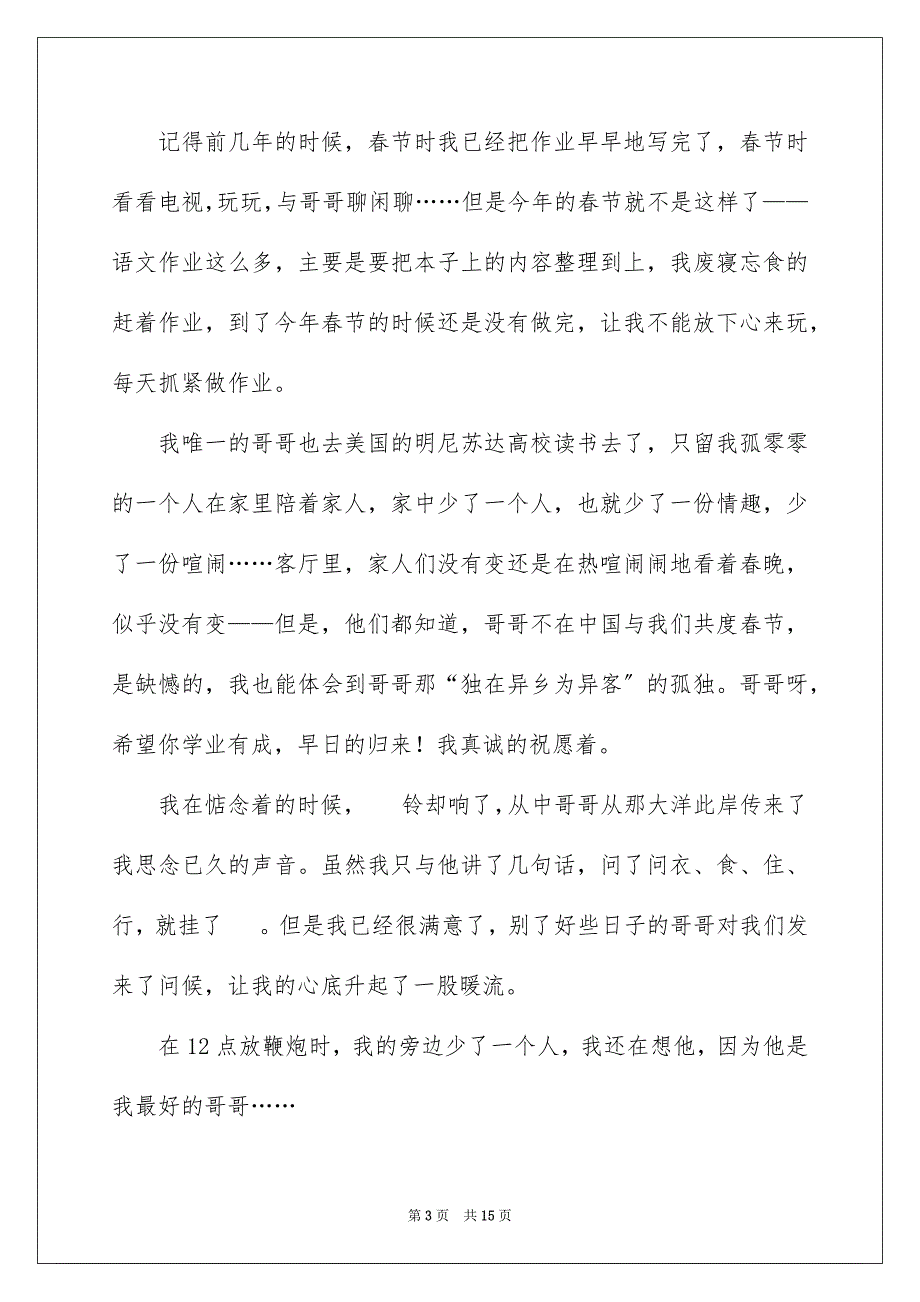 记得前几年的时候，春节时我已经把作业早早地写完了，春节时
看看电视,玩玩,与哥哥聊闲聊……但是今年的春节就不是这样了——
语文作业这么多，主要是要把本子上的内容整理到上，我废寝忘食的
赶着作业，到了今年春节的时候还是没有做完，让我不能放下心来玩，
每天抓紧做作业。
我唯一的哥哥也去美国的明尼苏达高校读书去了，只留我孤零零
的一个人在家里陪着家人，家中少了一个人，也就少了一份情趣，少
了一份喧闹……客厅里，家人们没有变还是在热喧闹闹地看着春晚，
似乎没有变——但是，他们都知道，哥哥不在中国与我们共度春节，
是缺憾的，我也能体会到哥哥那“独在异乡为异客〞的孤独。哥哥呀，
希望你学业有成，早日的归来！我真诚的祝愿着。
我在惦念着的时候，　铃却响了,从中哥哥从那大洋此岸传来了
我思念已久的声音。虽然我只与他讲了几句话，问了问衣、食、住、
行，就挂了　。但是我已经很满意了，别了好些日子的哥哥对我们发
来了问候，让我的心底升起了一股暖流。
在12点放鞭炮时，我的旁边少了一个人，我还在想他，因为他是
我最好的哥哥……
第 3 页 共 15 页